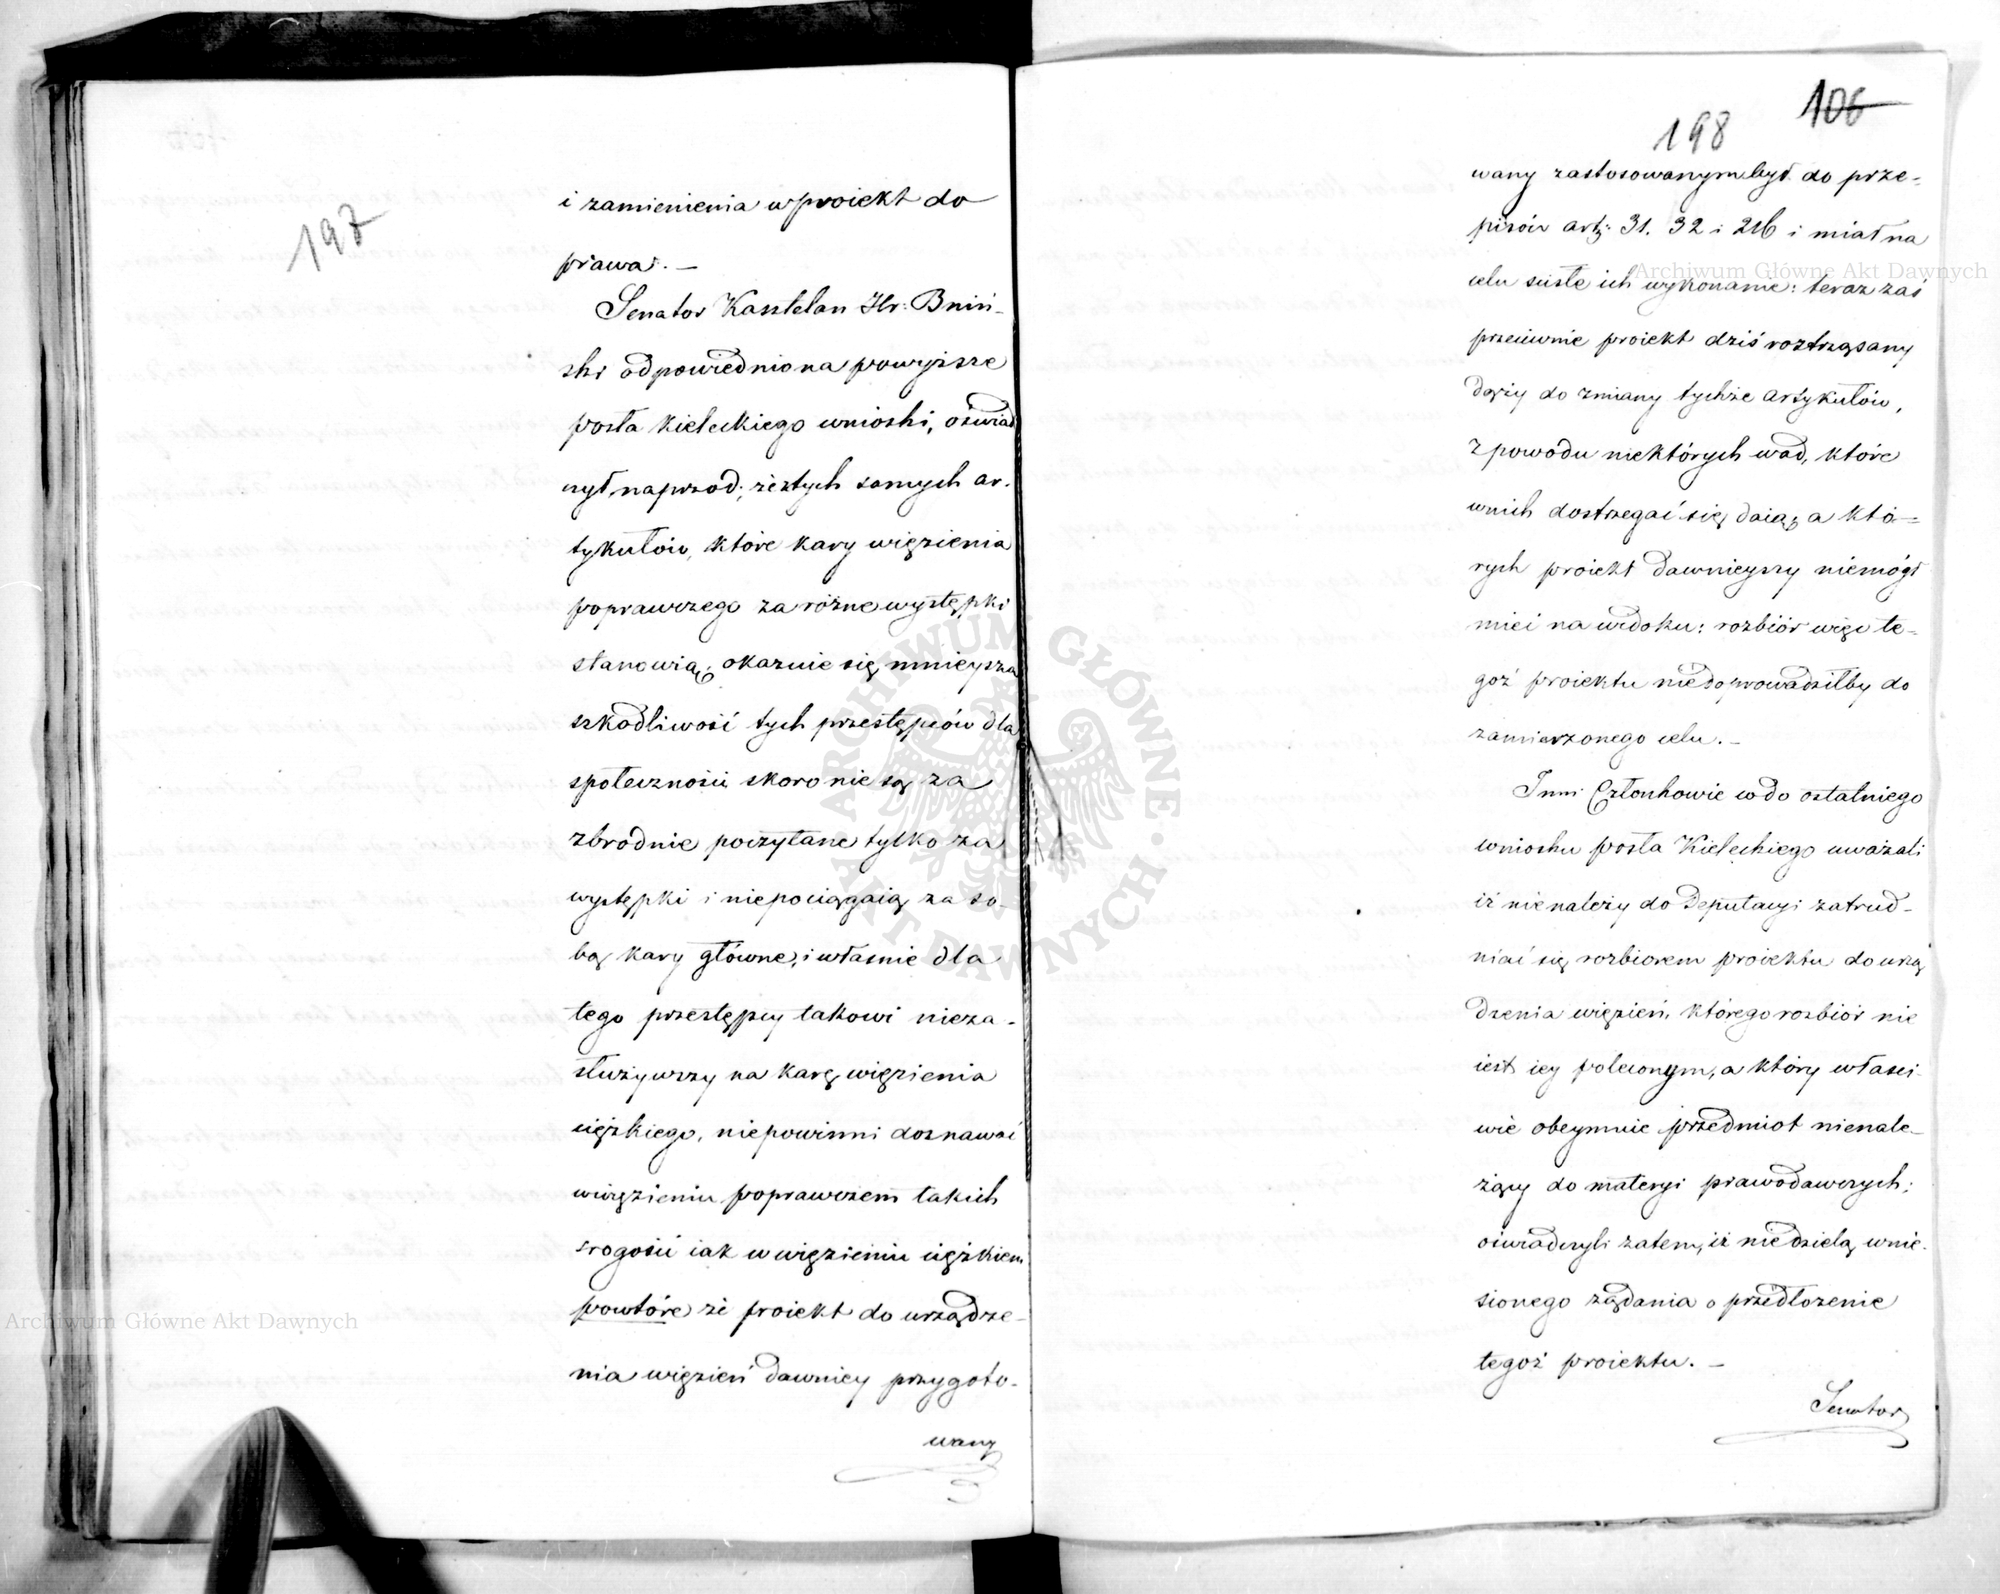 197
i zamienienia w proiekt do
prawa. —
Senator Kasztelan Hr: Bniń-
ski odpowiednio na powyższe
posła Kieleckiego wnioski, oświad
czył, naprzod; że z tych samych ar-
tykułów, które kary więzienia
poprawczego za różne występki
stanowią, okazuie się mnieysza
szkodliwość tych przestępców dla
społeczności skoro nie są za
zbrodnie poczytane tylko za
występki i niepociągaią za so-
bą kary główne, i właśnie dla
tego przestępcy takowi nieza-
służywszy na karę więzienia
ciężkiego, niepowinni doznawać
w więzieniu poprawczem takich
srogości iak w więzieniu ciężkiem
powtóre że proiekt do urządze-
nia więzień dawniey przygoto-
wany
106
198
wany zastosowanym był do prze-
pisów art: 31. 32 i 216 i miał na
celu ścisłe ich wykonanie: teraz zaś
przeciwnie proiekt dziś roztrząsany
dąży do zmiany tychże artykułów,
z powodu niektórych wad, które
w nich dostrzegać się daią, a któ-
rych proiekt dawnieyszy niemógł
mieć na widoku: rozbiór więc te-
goż proiektu niedoprowadziłby do
zamierzonego celu. —
Inni Członkowie co do ostatniego
wniosku posła Kieleckiego uważali
iż nienależy do Deputacyi zatrud-
niać się rozbiorem proiektu do urzą
dzenia więzień, którego rozbiór nie
iest iey poleconym, a który właści-
wie obeymuie przedmiot nienale-
żący do materyi prawodawczych;
oświadczyli zatem, iż nie dzielą wnie-
sionego żądania o przedłożenie
tegoż proiektu. —
Senator
Archiwum Główne Akt Dawnych
Archiwum Główne Akt Dawnych
ARCHIWUM GŁÓWNE · AKT DAWNYCH ·